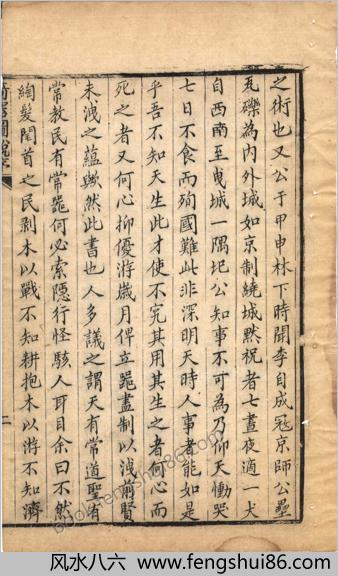 之術也又公于甲申林下時聞李自成寇京師公壘
瓦礫為內外城如京制繞城黙祝者七晝夜適一犬
自西南至曳城一隅圮公知事不可為乃仰天慟哭
七日不食而殉國難此非深明天時人事者能如是
乎吾不知天生此才使不究其用其生之者何心而
死之者又何心抑優游歲月俾立器畫制以洩前賢
未洩之蘊歟然此書也人多議之謂天有常道聖有
常教民有常器何必索隱行怪駭人耳目余曰不然
綯髮闓首之民剥木以戰不知耕抱木以游不知濟
圖說序
二
风水八六 www.fengshui86.com